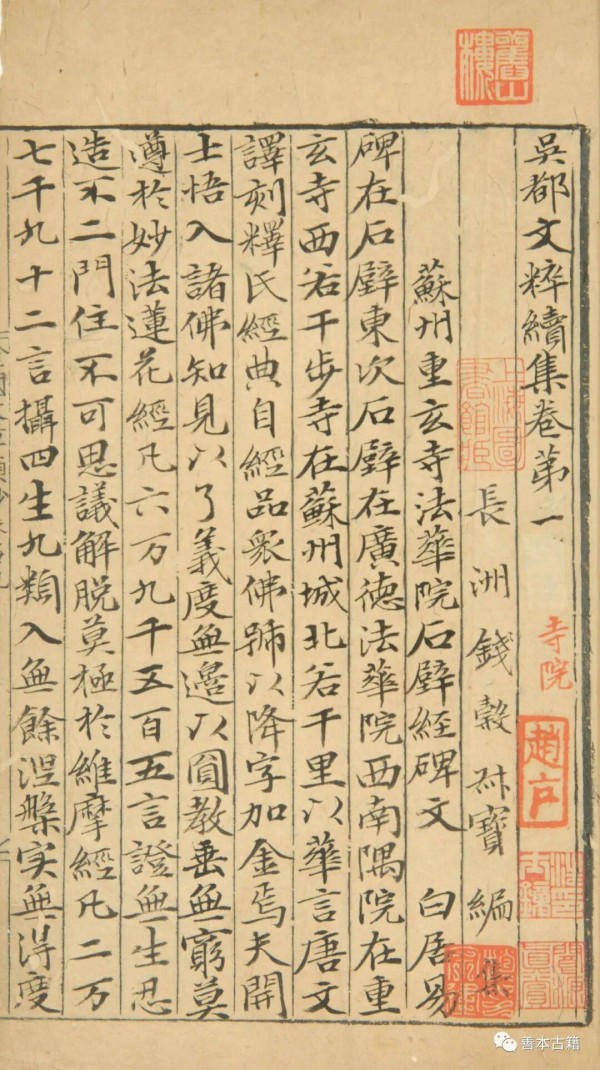 舊山樓
吳都文粹續集卷第一
寺院
上海圖書館藏
長洲錢穀叔寶編集
蘇州重玄寺法華院石壁經碑文 白居易
碑在石壁東次石壁在廣德法華院西南隅院在重
玄寺西若干步寺在蘇州城北若千里以華言唐文
譯刻釋氏經典自經品衆佛號以降字加金焉夫開
士悟入諸佛知見以了義度無邊以圓教垂無窮莫
遵於妙法蓮花經凡六万九千五百五言證無生忍
造不二門住不可思議解脫莫極於維摩經凡二万
七千九十二言攝四生九類入無餘涅槃实無得度
善本古籍